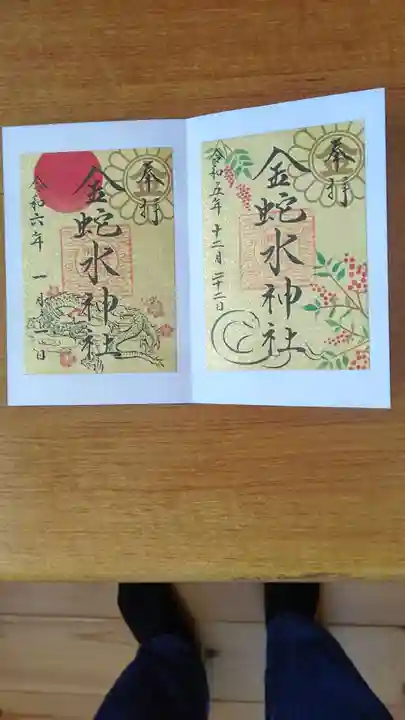 奉拝
金蛇水神社
令和五年 十二月二十二日
奉拝
金蛇水神社
令和六年 一月一日